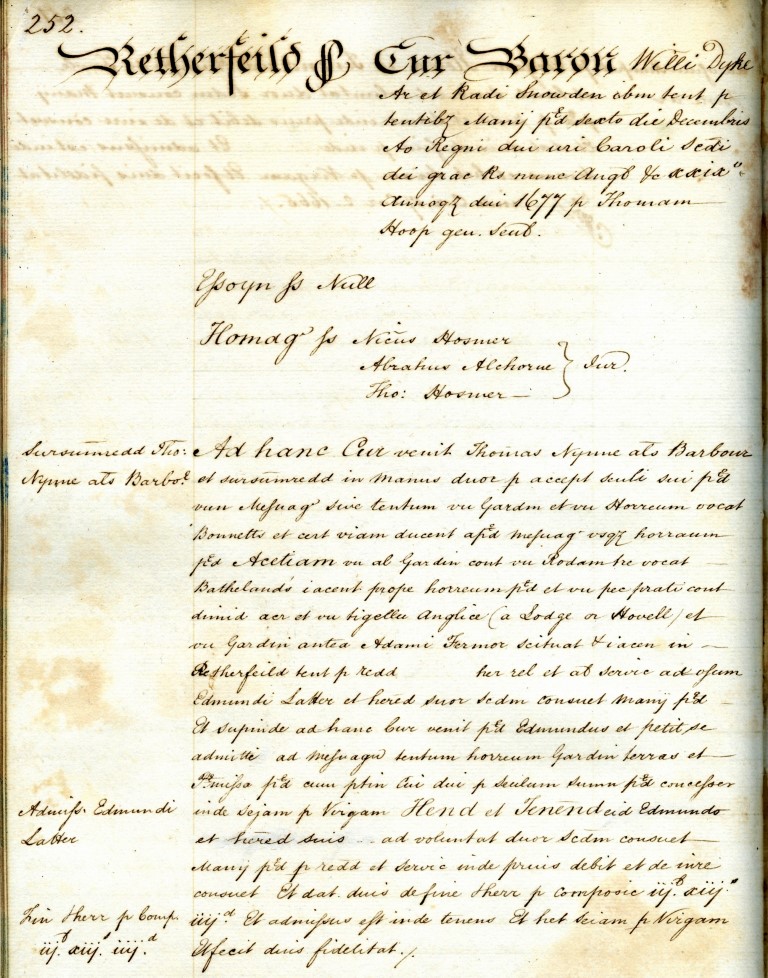 252.
Retherfeild ss Cur Baron Willi Dyke
Ar et Radi Snowden ibm tent p
tentibz Manij pred sexto die Decembris
Ao Regni dui uri Caroli Scdi
dei grac Rs nunc Angl &c xxix°
Annoqz dui 1677 p Thomam
Hoop gen. Senl.
Essoyn ss Null
Homag° ss Nicus Hosmer
Abrahus Alchorne
Tho: Hosmer
Jur.
Sursumredd Tho:
Nynne als Barbo.r
Ad hanc Cur venit Thomas Nynne als Barbour
et sursumredd in Manus duor p accept senli sui pred
vun Messuag sive tentum vu Gardin et vu Horreum vocat
Bonnetts et cert viam ducent a pred messuag vsqz horraum
pred Acetiam vu al Gardin cont vu Rodam tre vocat
Bathelands iacent prope horreum pred et vu pec prati cont
dimid acr et vu tigellu Anglice (a Lodge or Hovell) et
vu Gardin antea Adami Fermor scituat & iacen in
Retherfeild tent p redd her rel et al servic ad osum
Edmundi Latter et hered suor scdm consuet Manij pred
Et supinde ad hanc Cur venit pred Edmundus et petit se
admitti ad Messuagu tentum horreum Gardin terras et
Pmissa pred cum ptin Cui dui p senlum sunm pred concesser
Admiss Edmundi
Latter
inde sejam p Virgam Hend et Tenend eid Edmundo
et hered suis ad voluntat duor scdm consuet
Manij pred p redd et servic inde prius debit et de iure
consuet Et dat duis de fine Herr p Composic iij.li xiij.s
Fin Herr p Comp.
iij.li xiij.s iiij.d
iiij.d Et admissus est inde tenens Et het seiam p Virgam
Et fecit duis fidelitat.